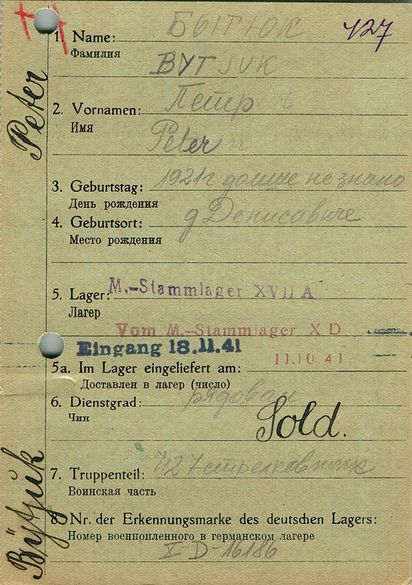 1. Name: 127
Фамилия
Peter
2. Vornamen: Петр
Имя
Peter
3. Geburtstag: 1921г дольше не знаю
День рождения
4. Geburtsort: д Денисавиче
Место рождения
5. Lager: M.-Stammlager XVII A
Лагер
Vom M.-Stammlager X D
Eingang 18.11.41 11.10.41
5a. Im Lager eingeliefert am:
Доставлен в лагер (число)
6. Dienstgrad: рядовой
Чин
Sold.
7. Truppenteil: 427
Воинская часть
Bÿtjuk
8. Nr. der Erkennungsmarke des deutschen Lagers:
Номер военнопленного в германском лагере
X-D-16186